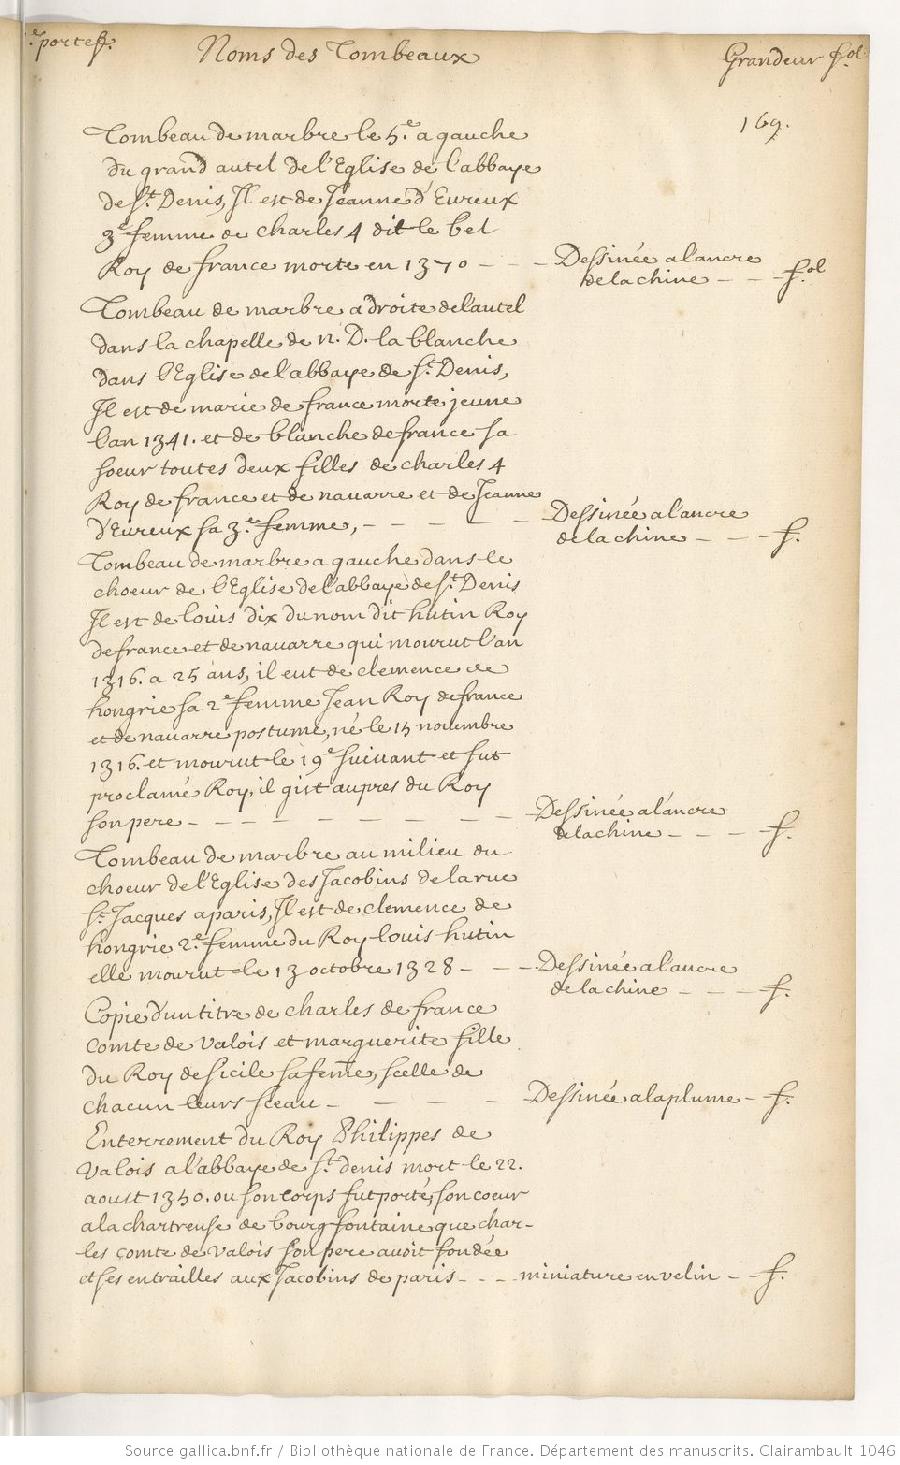 e portef. Noms des Tombeaux Grandeur fol.
169.
Tombeau de marbre le 5.e a gauche
du grand autel de l'Eglise de l'abbaye
de St. Denis, Il est de Jeanne d'Eureux
3e femme de charles 4 dit le bel
Roy de france morte en 1370 - - - Dessinée a l'ancre
de la chine - - - fol
Tombeau de marbre a droite de l'autel
dans la chapelle de n. D. la blanche
dans l'Eglise de l'abbaye de St. Denis,
Il est de marie de france morte jeune
l'an 1341. et de blanche de france sa
soeur toutes deux filles de charles 4
Roy de france et de nauarre et de Jeanne
d'Eureux sa 3.e femme, - - - - - Dessinée a l'ancre
de la chine - - - f.
Tombeau de marbre a gauche dans le
choeur de l'Eglise de l'abbaye de St. Denis
Il est de louis dix du nom dit hutin Roy
de france et de nauarre qui mourut l'an
1316. a 25 ans, il eut de clemence de
hongrie sa 2e femme Jean Roy de france
et de nauarre postume, né le 15 nouembre
1316. et mourut le 19e suiuant et fut
proclamé Roy, il gist aupres du Roy
son pere - - - - - - - - - Dessinée a l'ancre
de la chine - - - f.
Tombeau de marbre au milieu du
choeur de l'Eglise des Jacobins de la rue
St. Jacques a paris, Il est de clemence de
hongrie 2.e femme du Roy louis hutin
elle mourut le 13 octobre 1328 - - - Dessinée a l'ancre
de la chine - - - - f.
Copie d'un titre de charles de france
comte de valois et marguerite fille
du Roy de sicile sa feme, scelle de
chacun leurs sceau - - - - - Dessinée a la plume - f.
Enterrement du Roy Philippes de
valois a l'abbaye de St. denis mort le 22.
aoust 1350. ou son corps fut porté, son coeur
a la chartreuse de bourgfontaine que char-
les comte de valois son pere auoit fondée
et ses entrailles aux Jacobins de paris - - - miniature en velin - f.
Source gallica.bnf.fr / Bibliothèque nationale de France. Département des manuscrits. Clairambault 1046